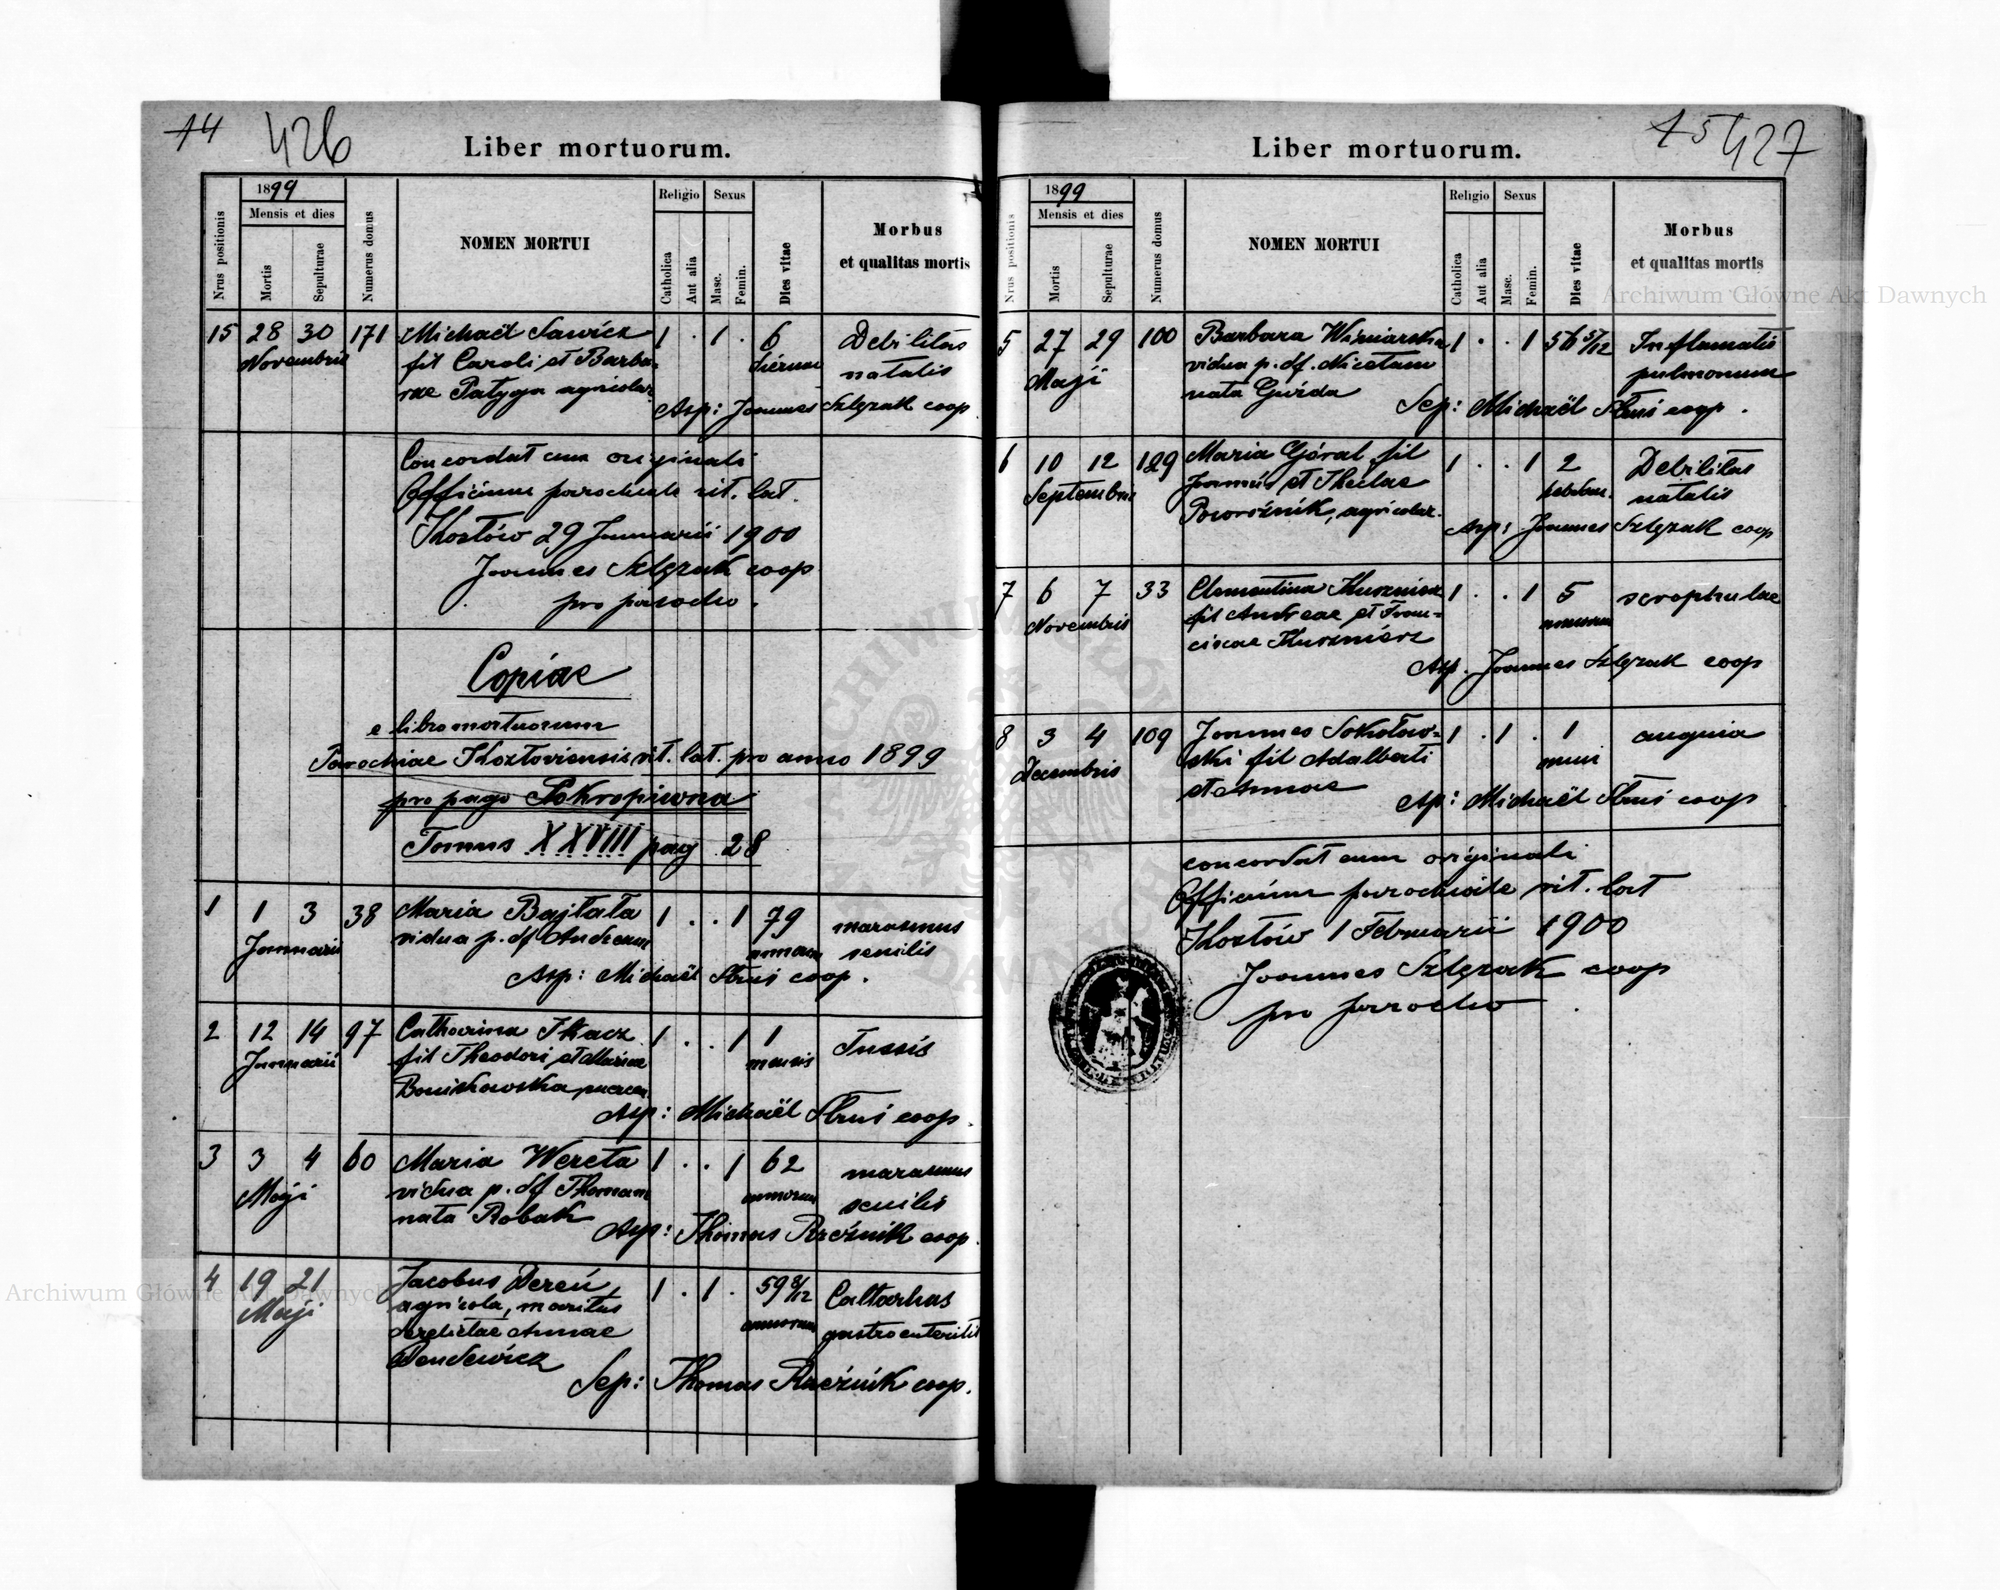 14 426
Liber mortuorum.
Nrus positionis
1899
Mensis et dies
Mortis
Sepulturae
Numerus domus
NOMEN MORTUI
Religio
Catholica
Aut alia
Sexus
Masc.
Femin.
Dies vitae
Morbus
et qualitas mortis
15 28 30 171 Michaël Sawicz 1 . 1 . 6 Debilitas
Novembris fil Caroli et Barba- dierum natalis
rae Patyga agricolar.
Asp: Joannes Szlęzak coop
Concordat cum originali
Officium parochiale rit. lat.
Kozłów 29 Januarii 1900
Joannes Szlęzak coop
pro parocho.
Copiae
e libro mortuorum
Parochiae Kozłoviensis rit. lat. pro anno 1899
pro pago Pokropiwna
Tomus XXVIII pag 28
1 1 3 38 Maria Bajtała 1 . . 1 79 marasmus
Januarii vidua p. df Andream annorum senilis
Asp: Michaël Struś coop.
2 12 14 97 Catharina Tkacz 1 . . 1 1 Tussis
Januarii fil Theodori et Mariae mensis
Asp: Michaël Struś coop.
3 3 4 60 Maria Wereta 1 . . 1 62 marasmus
Maji vidua p. df Thomam annorum senilis
nata Robak
Asp: Thomas Rzeźnik coop.
4 19 21 Jacobus Dereń, 1 . 1 . 59 8/12 Cattarhus
Maji agricola, maritus annorum gastroenteritis
derelictae Annae
Sep: Thomas Rzeźnik coop.
15 427
Liber mortuorum.
Nrus positionis
1899
Mensis et dies
Mortis
Sepulturae
Numerus domus
NOMEN MORTUI
Religio
Catholica
Aut alia
Sexus
Masc.
Femin.
Dies vitae
Morbus
et qualitas mortis
5 27 29 100 Barbara Wiśniarska 1 . . 1 56 5/12 Inflamatis
Maji vidua p. df. Nicetam pulmonum
nata Gwizda
Sep: Michaël Struś coop.
6 10 12 129 Maria Góral fil 1 . . 1 2 Debilitas
Septembris Joannis et Theclae hebdom. natalis
Poworoźnik, agricolar.
Asp: Joannes Szlęzak coop
7 6 7 33 Clementina Kusznierz 1 . . 1 5 scrophulae
Novembris fil Andreae et Fran-
ciscae Kusznierz
Asp. Joannes Szlęzak coop
8 3 4 109 Joannes Sokołow- 1 . 1 . 1 anguia
Decembris ski fil Adalberti anni
et Annae
Asp: Michaël Struś coop
concordat cum originali
Officium parochiale rit. lat
Kozłów 1 Februarii 1900
Joannes Szlęzak coop
pro parocho
Archiwum Główne Akt Dawnych
Archiwum Główne Akt Dawnych